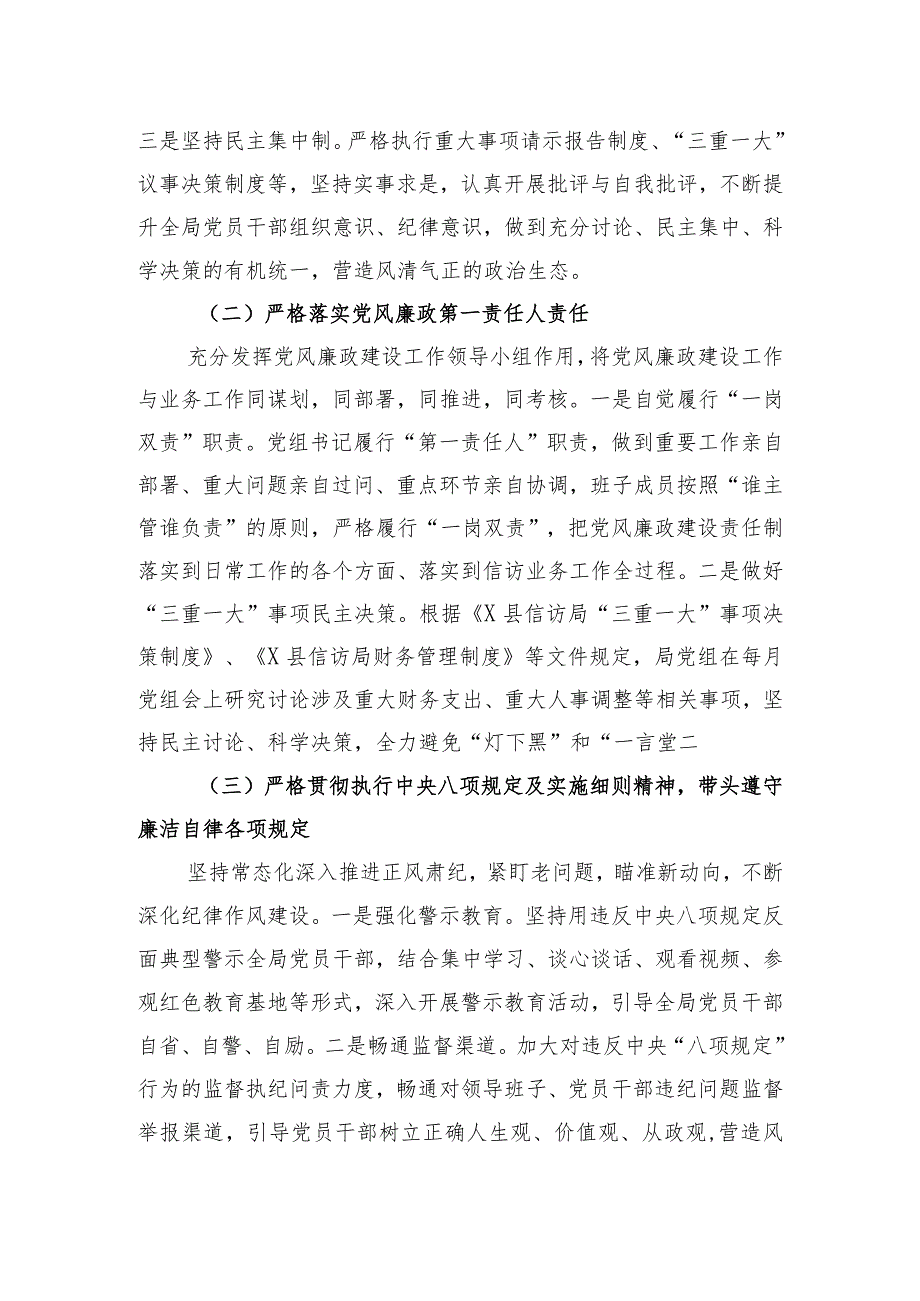 三是坚持民主集中制。严格执行重大事项请示报告制度、“三重一大”
议事决策制度等，坚持实事求是，认真开展批评与自我批评，不断提
升全局党员干部组织意识、纪律意识，做到充分讨论、民主集中、科
学决策的有机统一，营造风清气正的政治生态。
（二）严格落实党风廉政第一责任人责任
充分发挥党风廉政建设工作领导小组作用,将党风廉政建设工作
与业务工作同谋划，同部署，同推进，同考核。一是自觉履行“一岗
双责”职责。党组书记履行“第一责任人”职责，做到重要工作亲自
部署、重大问题亲自过问、重点环节亲自协调，班子成员按照“谁主
管谁负责”的原则，严格履行“一岗双责”，把党风廉政建设责任制
落实到日常工作的各个方面、落实到信访业务工作全过程。二是做好
“三重一大”事项民主决策。根据《X县信访局“三重一大”事项决
策制度》、《X县信访局财务管理制度》等文件规定，局党组在每月
党组会上研究讨论涉及重大财务支出、重大人事调整等相关事项，坚
持民主讨论、科学决策，全力避免“灯下黑”和“一言堂二
（三）严格贯彻执行中央八项规定及实施细则精神，带头遵守
廉洁自律各项规定
坚持常态化深入推进正风肃纪，紧盯老问题，瞄准新动向，不断
深化纪律作风建设。一是强化警示教育。坚持用违反中央八项规定反
面典型警示全局党员干部，结合集中学习、谈心谈话、观看视频、参
观红色教育基地等形式，深入开展警示教育活动，引导全局党员干部
自省、自警、自励。二是畅通监督渠道。加大对违反中央“八项规定”
行为的监督执纪问责力度，畅通对领导班子、党员干部违纪问题监督
举报渠道，引导党员干部树立正确人生观、价值观、从政观,营造风